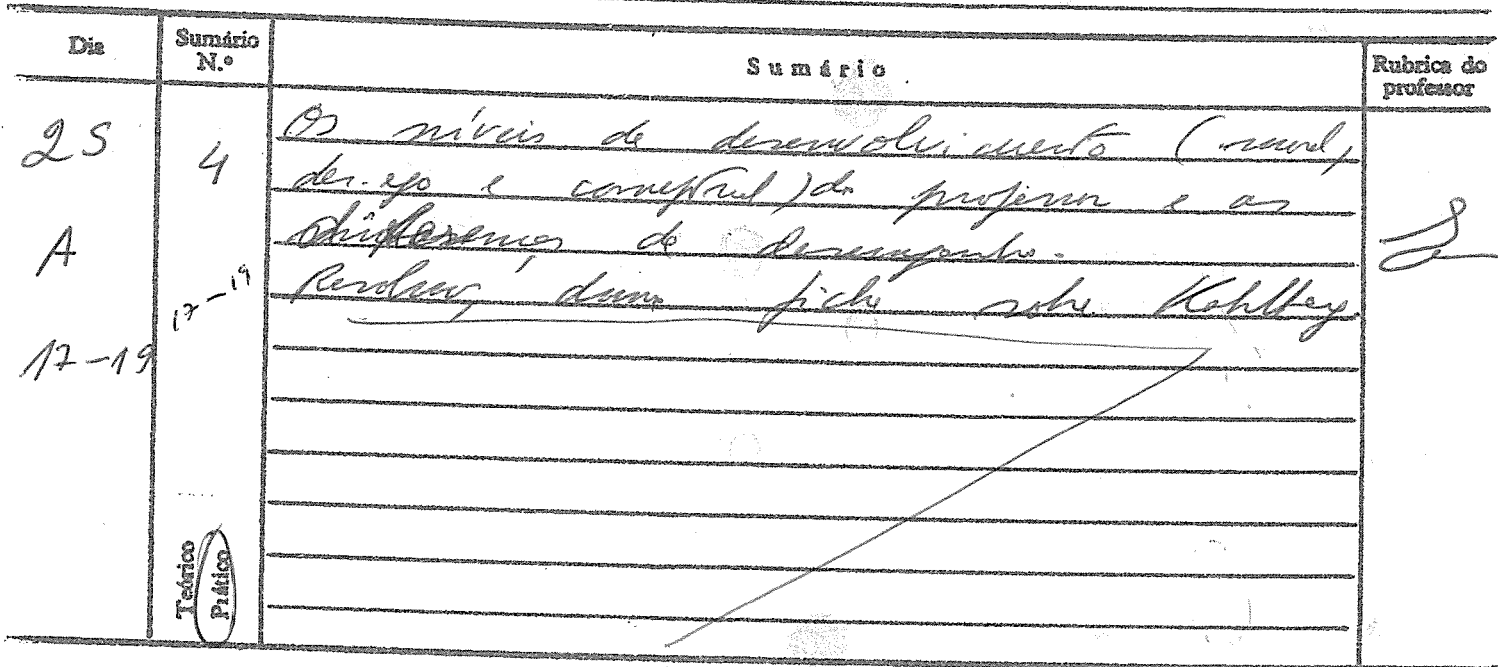 Dia
Sumário
N.º
Sumário
Rubrica do
professor
25
4
A
17-19
17-19
Os níveis de desenvolvimento (moral,
des. ego e conceptual) do professor e as
diferenças de desempenho.
Resolução duma ficha sobre Kohlberg.
Teórico
Prático